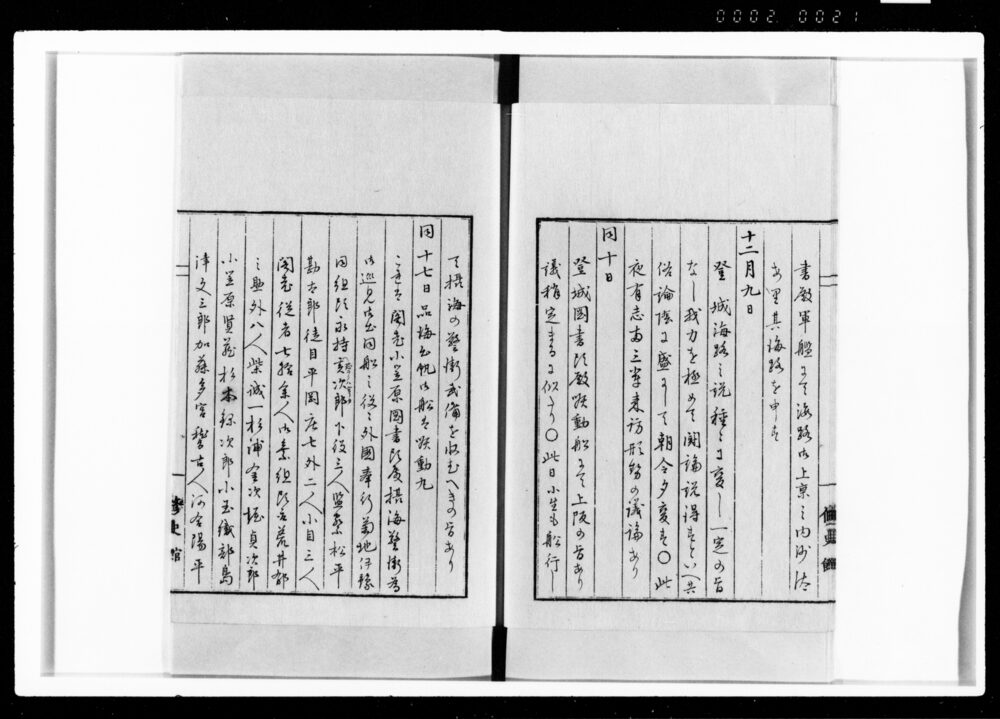 0002 0021
書殿軍艦にて海路御上京之内御沙汰
あり其海路を申す
十二月九日
登城海路之説種々に変し一定の旨
なし我力を極めて開論説得すといへ共
俗論陰に盛にして朝令夕変す〇此
夜有志両三輩来訪形勢の議論あり
同十日
登城図書頭殿蟠動船にて上阪の旨あり
議稍定まるに似たり〇此日小生も船行
て摂海の警衛武備を改むへきの旨あり
同十七日品海出帆御船は蟠動丸
これは閣老小笠原図書頭殿摂海警衛為
御巡見御出同船之従之外国奉行菊地伊予
同組頭永持亥次郎下役三人監察松平
勘太郎徒目平岡庄七外二人小目三人
閣老従者七拾余人御素組頭古若井郁
之助外八人柴誠一杉浦金次堀貞次郎
小笠原賢蔵杉本録次郎小玉織部島
津文三郎加藤多宮稽古人河合陽平
修史館
修史館